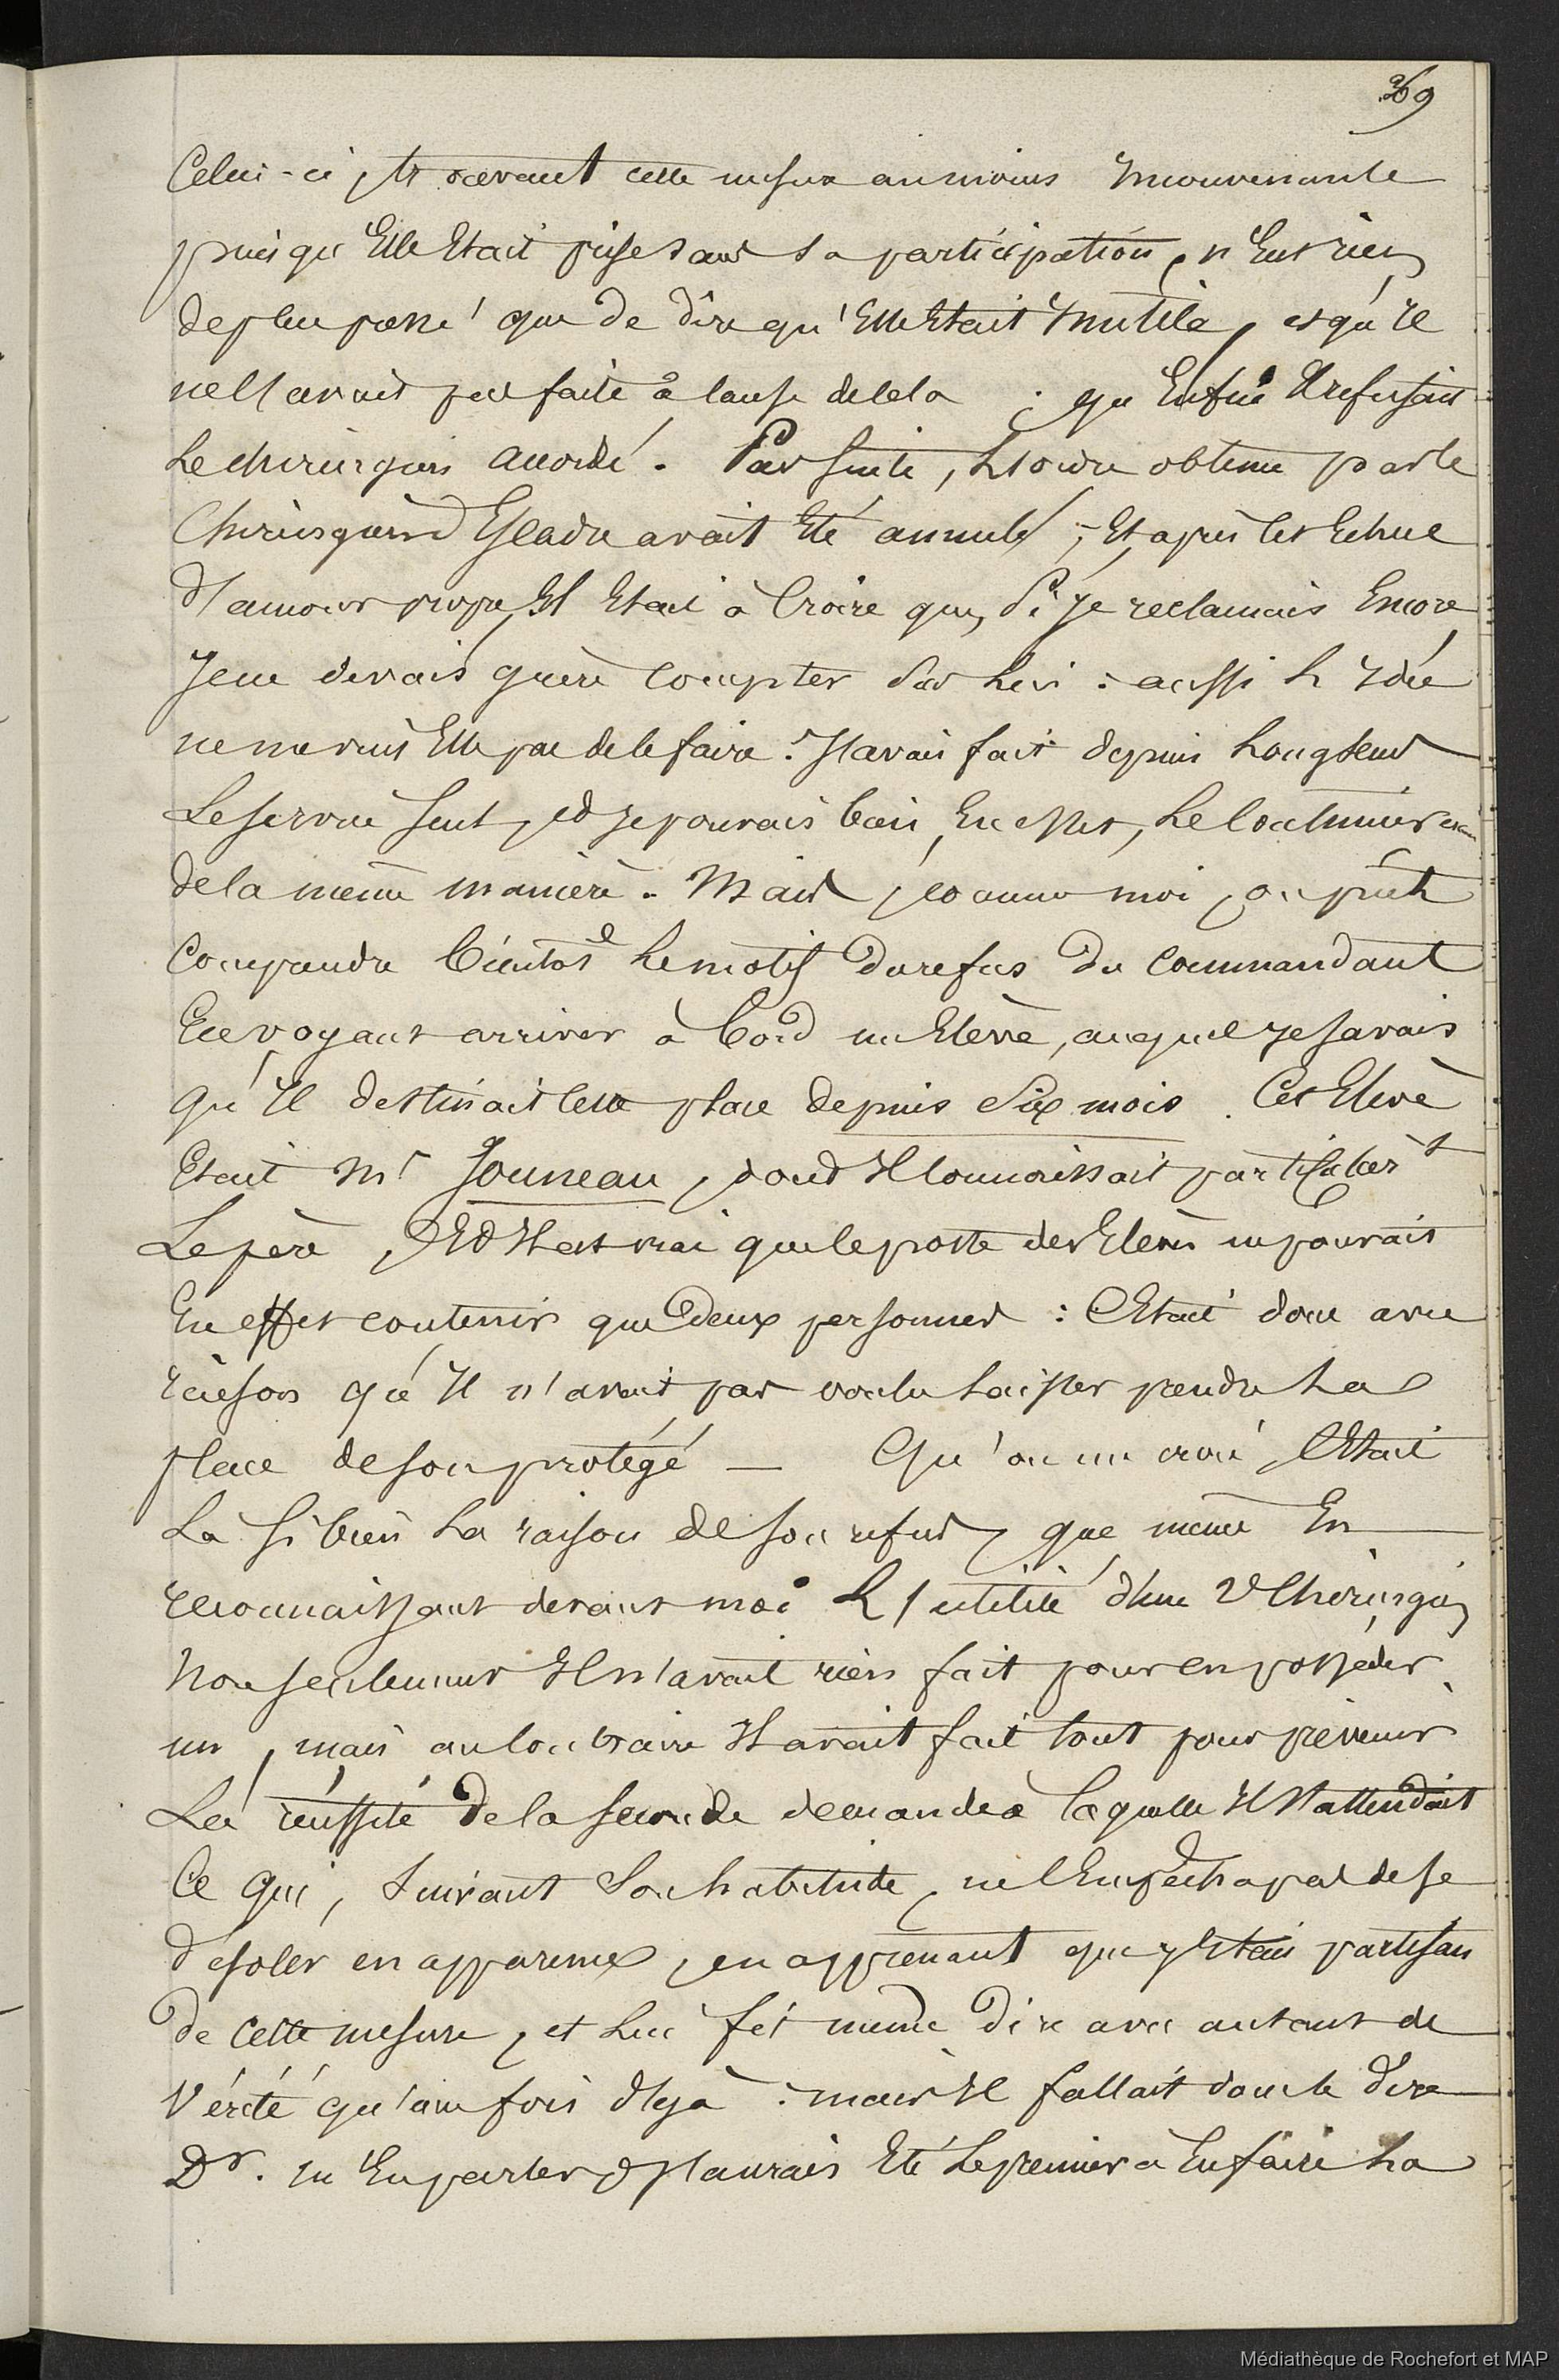 369
Celui-ci, trouvant cette mesure au moins Inconvenante
puisqu'Elle Etait prise sans sa participation, n'Eut rien
de plus pressé que de dire qu'Elle Etait Inutile, et qu'Il
ne l'avait pas faite à cause de cela ; qu'Enfin Il refusait
Le chirurgien accordé. Par suite, L'ordre obtenu par le
Chirurgien d'Escadre avait Eté annulé ; Et après cet Echec
d'amour propre, Il Etait à Croire que, Si Je reclamais Encore
Je ne devais guère compter sur Lui : aussi L'Idée
ne me vint Elle pas de le faire. J'avais fait depuis Longtems
Le service seul, et Je pouvais bien, En effet, Le Continuer
de la même manière. Mais, comme moi, on put
Comprendre bientôt Le motif du refus du Commandant
En voyant arriver à bord un Elève, auquel Je savais
qu'Il destinait cette place depuis Six mois. Cet Elève
Etait Mr Jouneau, dont Il connoissait particulièrt
Le père, Et Il est vrai que le poste des Elèves ne pouvait
En effet contenir que deux personnes : C'Etait donc avec
raison qu'Il n'avait pas voulu Laisser prendre La
place de son protégé — Qu'on me croie, C'Etait
Là si bien La raison de son refus, que même En
reconnaissant devant moi L'utilité d'un 2d Chirurgien
Non seulement Il n'avait rien fait pour en posséder
un, mais au Contraire Il avait fait tout pour prévenir
La réussite de la seconde demande à laquelle Il S'attendait
Ce qui, Suivant Son habitude, ne l'Empêcha pas de se
désoler en apparence, en apprenant que J'Etais partisan
de cette mesure, et Lui fit même dire avec autant de
Vérité qu'une fois déjà : mais Il fallait donc le dire
Dr. m'En parler, J'aurais Eté Le premier à En faire La
Médiathèque de Rochefort et MAP